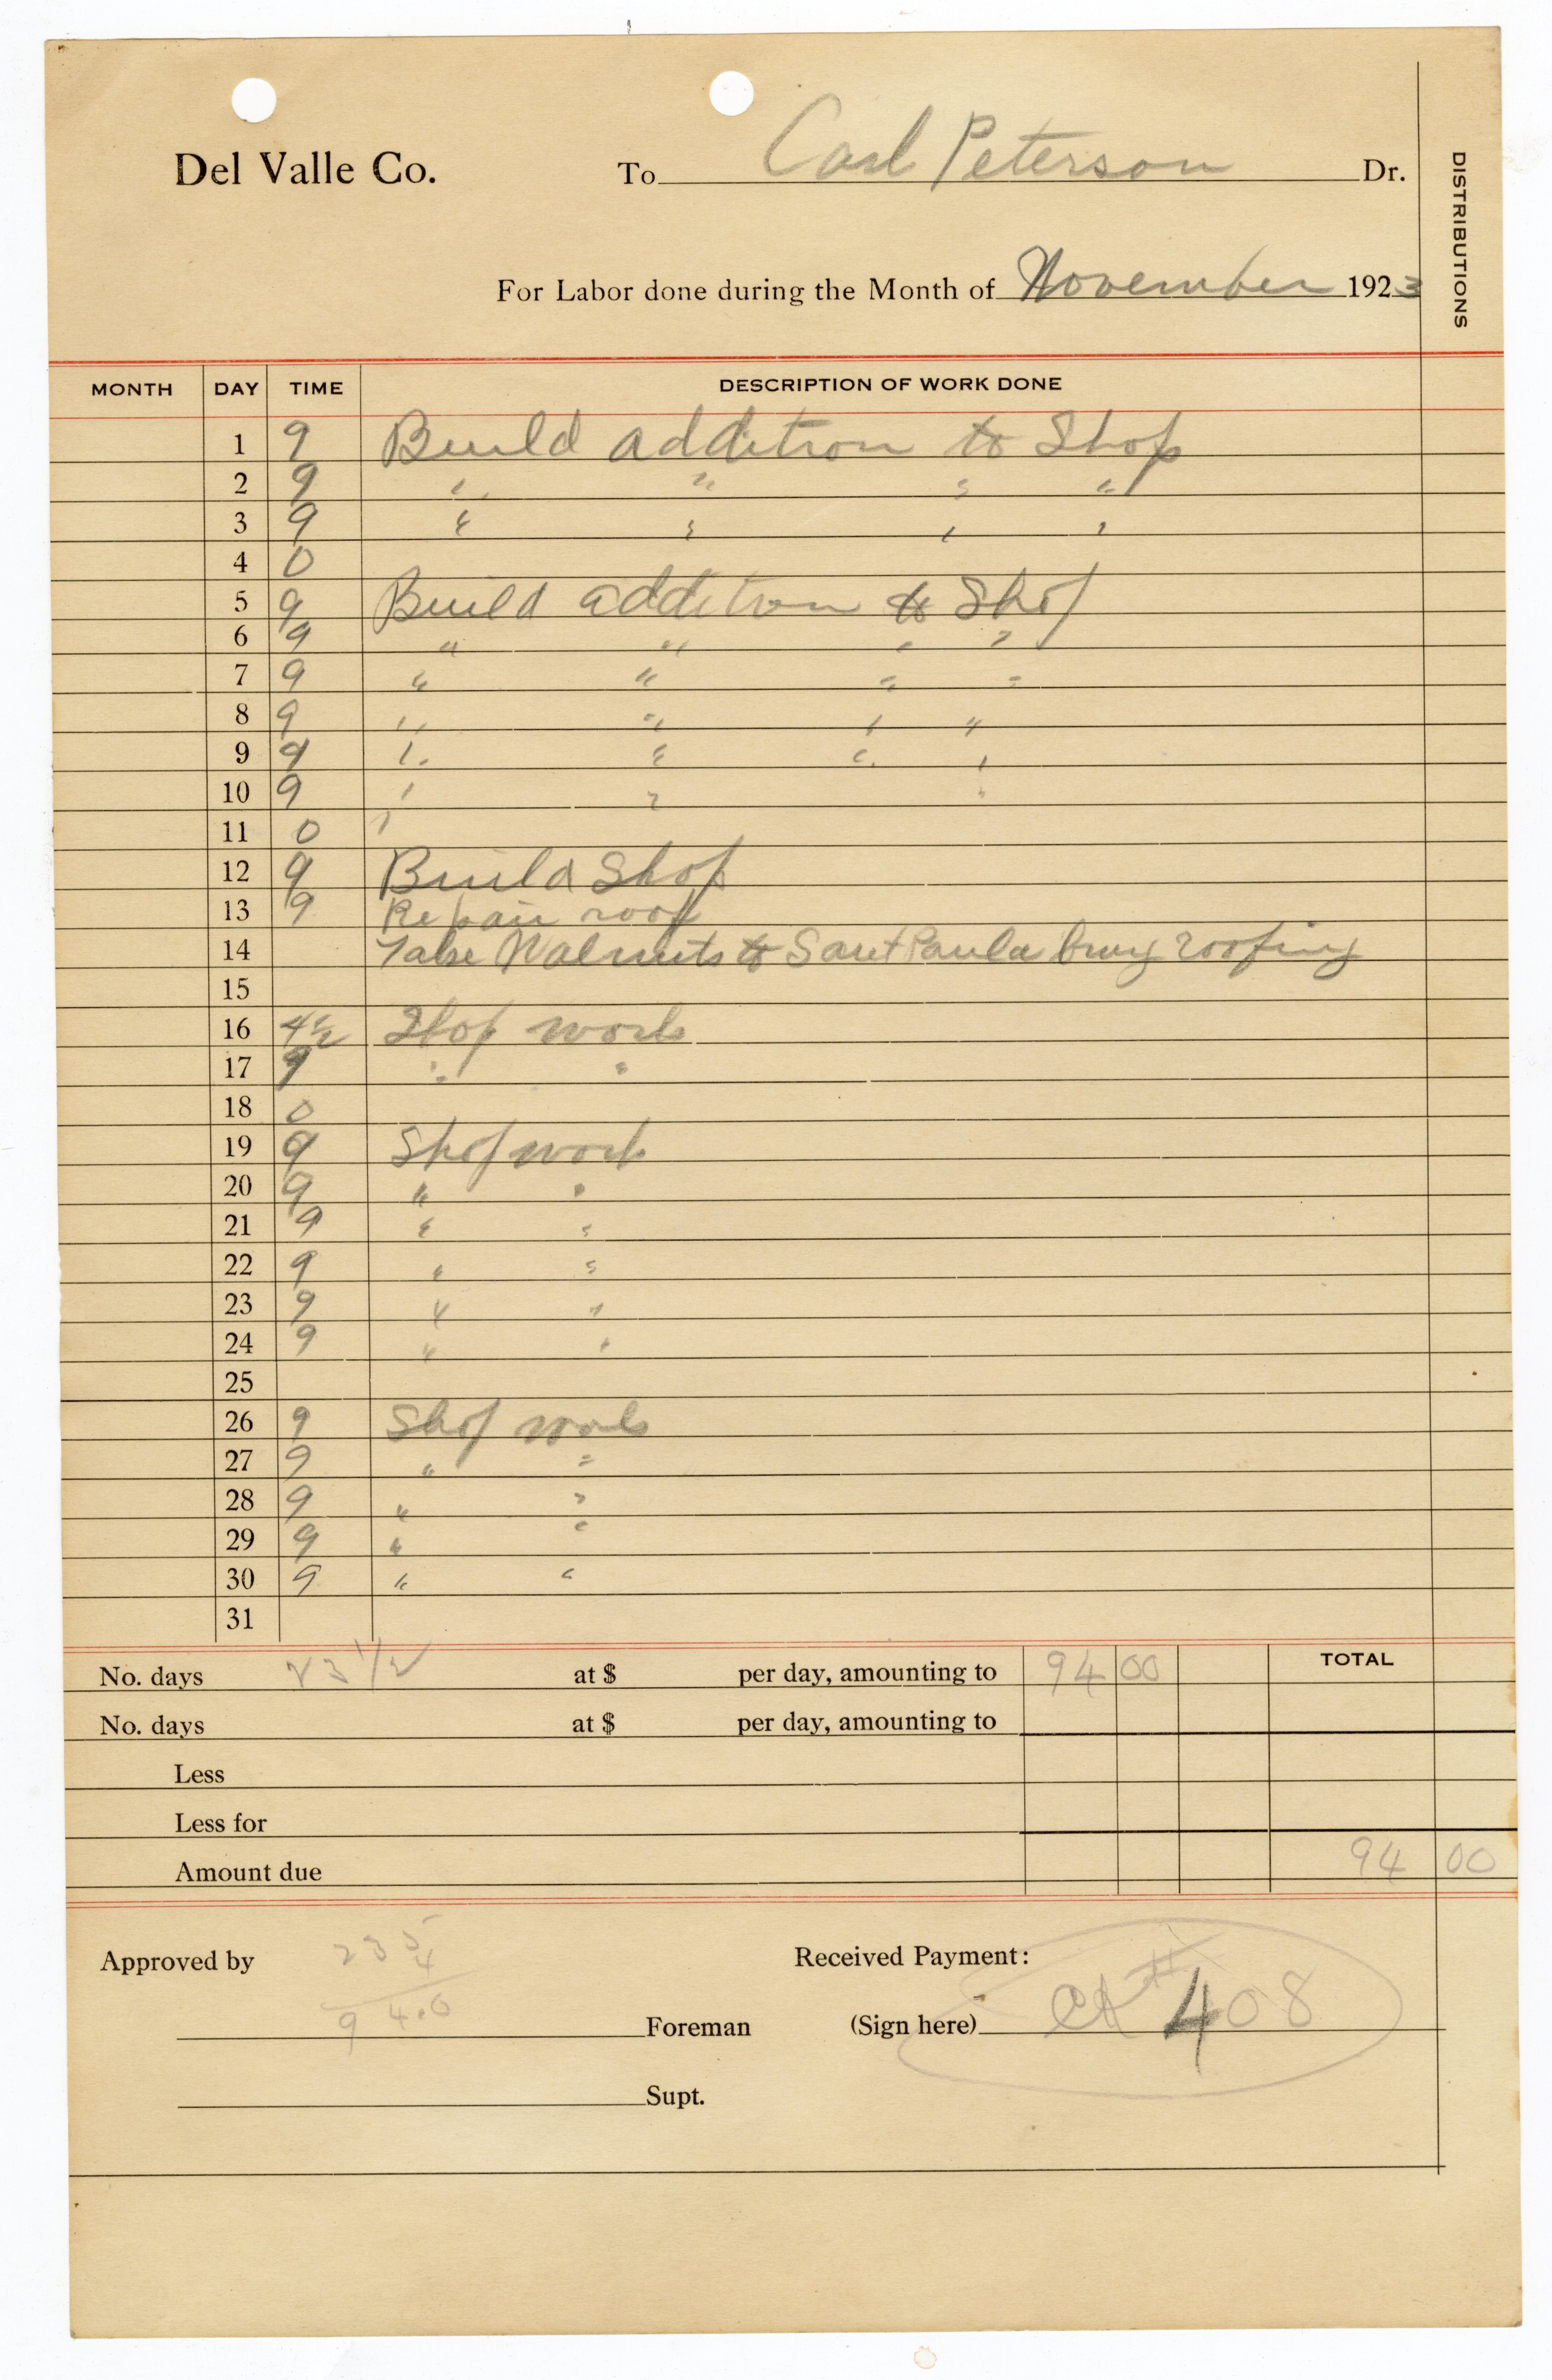 Del Valle Co. To Carl Peterson Dr.
DISTRIBUTIONS
For Labor done during the Month of November 1923
MONTH DAY TIME DESCRIPTION OF WORK DONE
1 9 Build addition to Shop
2 9 " " " "
3 9 " " " "
4 0
5 9 Build addition to Shop
6 9 " " " "
7 9 " " " "
8 9 " " " "
9 9 " " " "
10 9 " " "
11 0
12 9 Build Shop
13 9 Repair roof
14 Take Walnuts to Sant Paula bring roofing
15
16 4½ Shop work
17 9 " "
18 0
19 9 Shop work
20 9 " "
21 9 " "
22 9 " "
23 9 " "
24 9 " "
25
26 9 Shop work
27 9 " "
28 9 " "
29 9 " "
30 9 " "
31
No. days 23 1/2 at $ per day, amounting to 94 00 TOTAL
No. days at $ per day, amounting to
Less
Less for
Amount due 94 00
Approved by 235 Received Payment:
4
94.0
Foreman (Sign here) ck # 408
Supt.